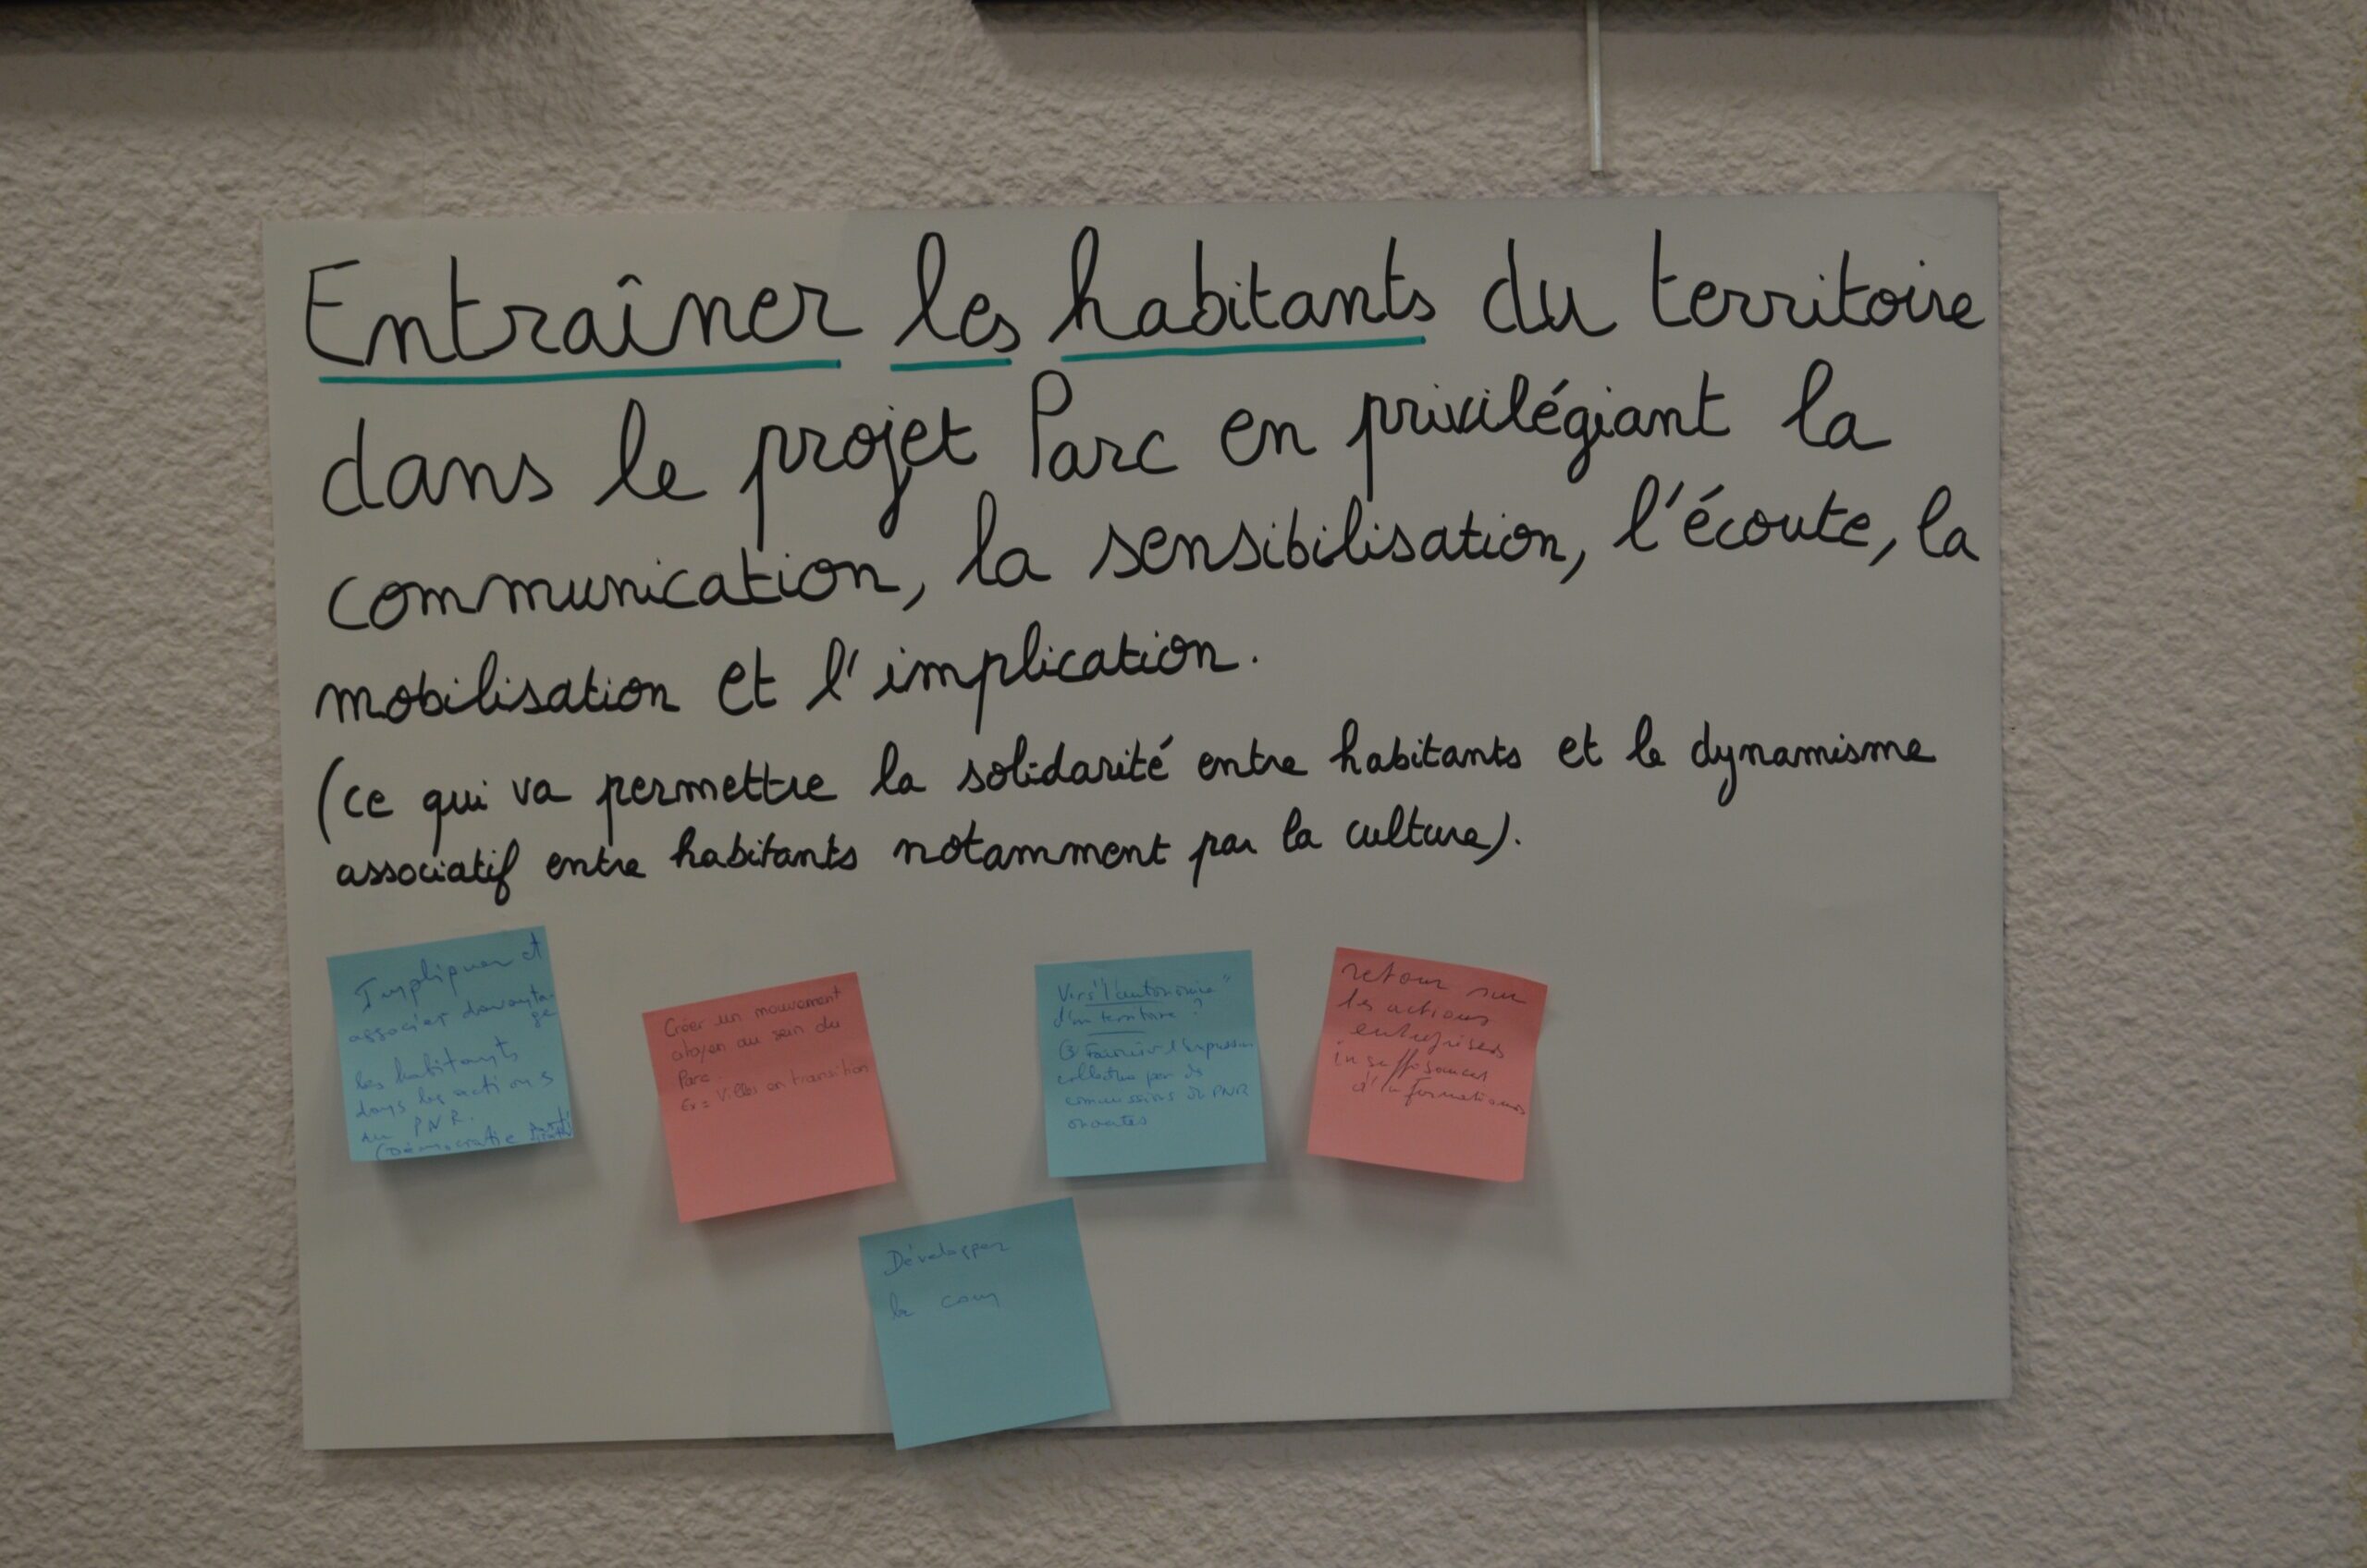 Entraîner les habitants du territoire
dans le projet Parc en privilégiant la
communication, la sensibilisation, l'écoute, la
mobilisation et l'implication.
(ce qui va permettre la solidarité entre habitants et le dynamisme
associatif entre habitants notamment par la culture).
Impliquer et
associer davanta-
ge
les habitants
dans les actions
du PNR.
(Démocratie
Créer un mouvement
citoyen au sein du
Parc.
Ex : Villes en transition
Vers "l'autonomie"
d'un territoire ?
l'expression
collective par des
commissions du PNR
ouvertes
retour sur
les actions
entreprises
insuffisances
d'informations
Développer
la com